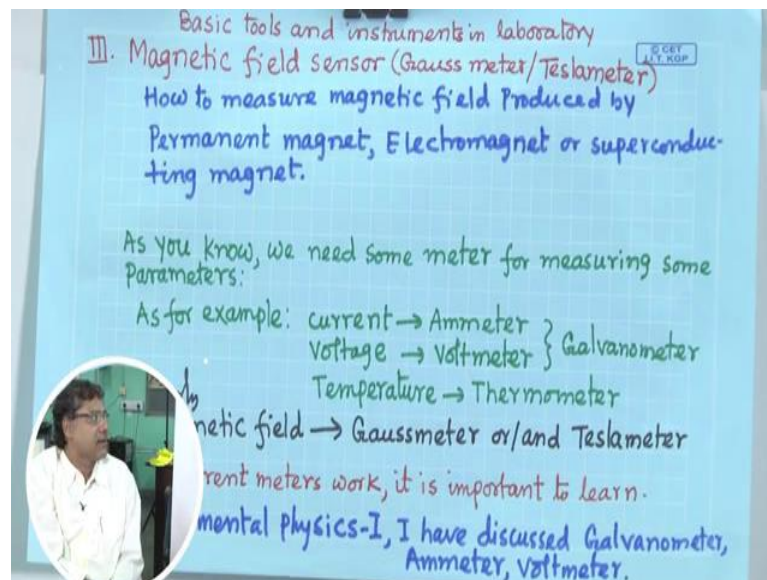 Basic tools and instruments in laboratory
III. Magnetic field sensor (Gauss meter/Teslameter)
© CET
I.I.T. KGP
How to measure magnetic field Produced by
Permanent magnet, Electromagnet or superconduc-
ting magnet.
As you know, we need some meter for measuring some
Parameters:
As for example: current → Ammeter
Voltage → Voltmeter } Galvanometer
Temperature → Thermometer
netic field → Gaussmeter or/and Teslameter
rent meters work, it is important to learn.
mental Physics-I, I have discussed Galvanometer,
Ammeter, Voltmeter.